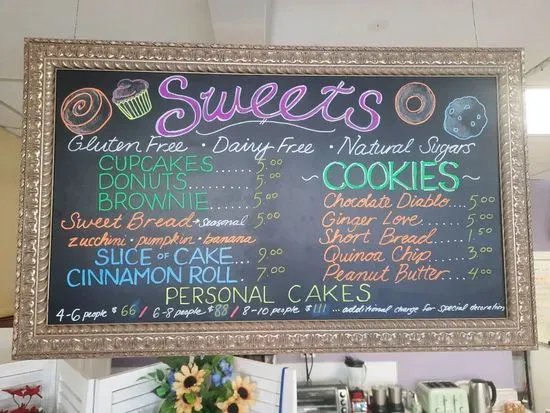 Sweets
Gluten Free • Dairy Free • Natural Sugars
CUPCAKES..... 5.00
DONUTS....... 5.00
BROWNIE..... 5.00
Sweet Bread → seasonal 5.00
zucchini • pumpkin • banana
SLICE OF CAKE.... 9.00
CINNAMON ROLL. 7.00
~ COOKIES ~
Chocolate Diablo.... 5.00
Ginger Love..... 5.00
Short Bread.... 1.50
Quinoa Chip.... 3.00
Peanut Butter... 4.00
PERSONAL CAKES
4-6 people $66 / 6-8 people $88 / 8-10 people $111 ... additional charge for special decoration